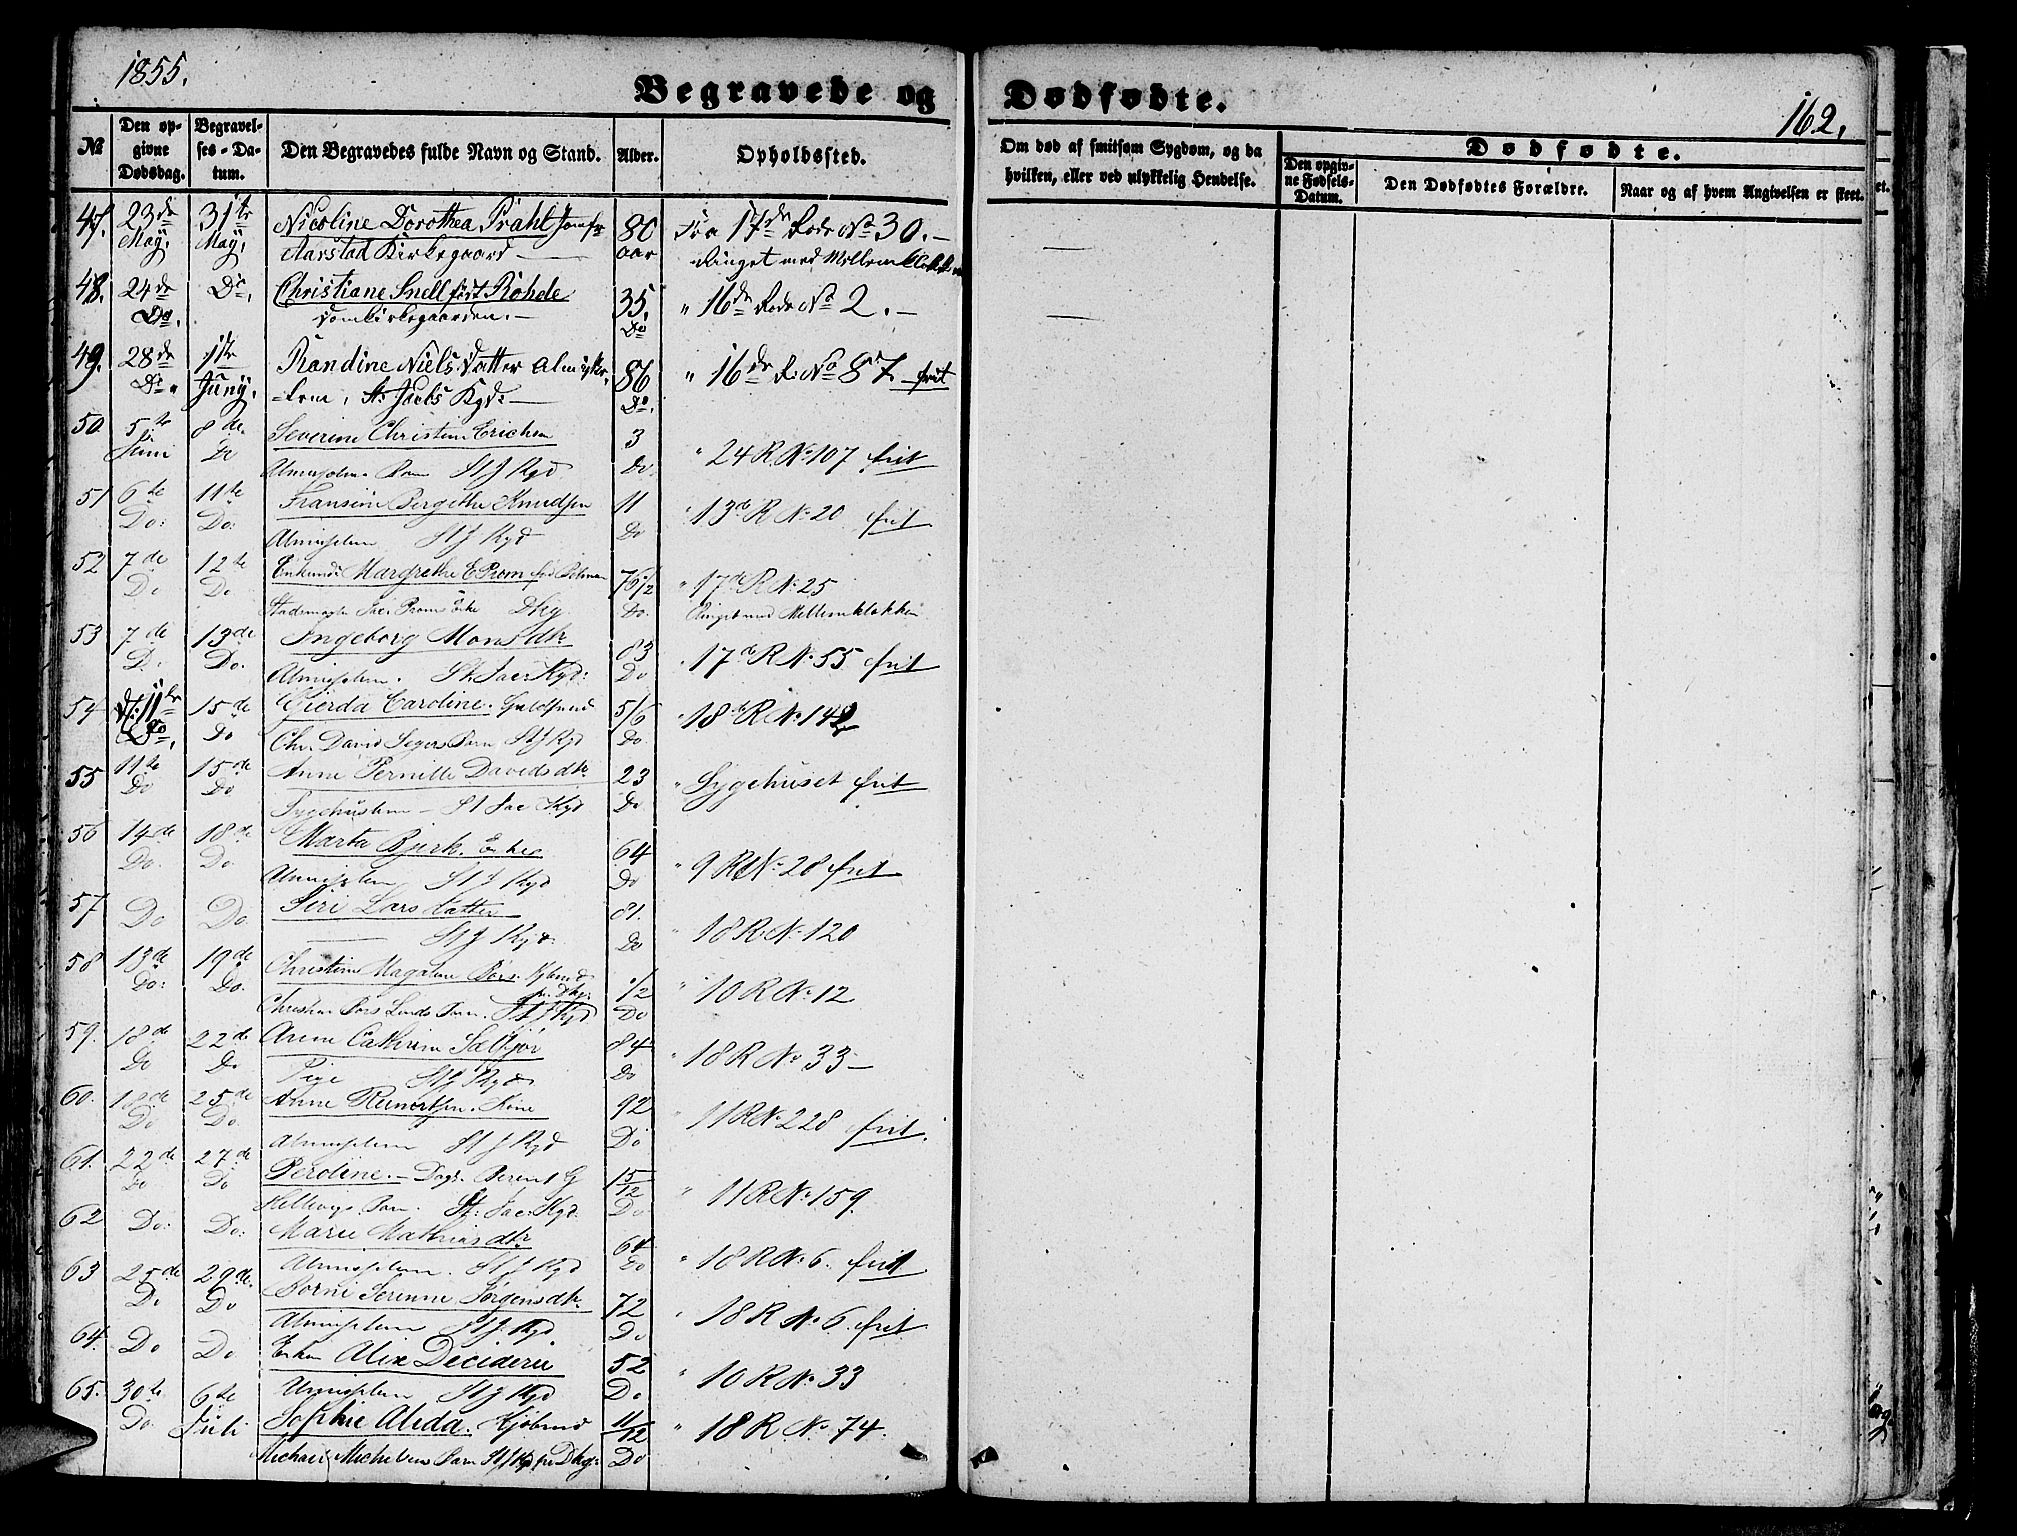 1855.
Begravede og Dødfødte.
162,
№
Den opgivne Dødsdag.
Begravelses-Datum.
Den Begravedes fulde Navn og Stand.
Alder.
Opholdssted.
Om død af smitsom Sygdom, og da hvilken, eller ved ulykkelig Hendelse.
Dødfødte.
Den opgivne Fødsels-Datum.
Den Dødfødtes Forældre.
Naar og af hvem Angivelsen er skeet.
47. 23de 31te Nicoline Dorothea Prahl Jomfr 80 Fra 17de Rode No 30.
May, May, Aarstad Kirkegaard aar Ringet med Mellemklokken
48. 24de Do. Christiane Snell født Rohde 35. " 16de Rode No 2.
Do. Domkirkegaarden. Do
49. 28de 1te Randine Niels Datter Almisse 86 " 16de R: No 87. frit
Do. Juny. lem, St: Jacbs Kgd: Do.
50. 5te 8de. Severine Christine Erichsen 3 " 24 R No 107 frit
Juni Do Almisselem Barn St J Kgd Do.
51 6te 11te Fransine Bergithe Knudsen 11 " 13de R No 20 frit
Do: Do: Almisselem St J Kgd Do
52 7de 12te Enkemd: Margrethe E Prom fød 76 1/2 " 17de R No 25
Do Do Enke Dkg Do. Ringet med Mellemklokken
53 7de 13de Ingeborg Monsdtr 83 " 17de R No 55 frit
Do. Do. Almisselem. St. Jac: Kgd: Do
54 11te 15de Gierda Caroline. 5/6 " 18de R No 142
Do. Do Chr. David Segers Barn St J Kgd Do
55 11te 15de Anne Pernille Davidsdtr 23 " Sygehuset frit
Do Do Sygehuslem St Jac Kgd Do
56 14de 18de Marta Bjerk. Enke 64 " 9 R No 28 frit
Do. Do Almisselem St J Kgd Do
57 Do Do Siri Lars Datter 81. " 18 R No 120
St J Kgd. Do
58 13de 19de Christine Magdalene Børs. 1/2 " 10 R No 12
Do: Do. Christian Børs Lunds Barn. St J Kgd Do
59. 18de 22de Arene Cathrine Sæltjør 84 " 18 R No 33
Do Do Pige St J Kgd Do
60. 18de 25de Anne Reinertsen. 92 " 11 R No 228 frit.
Do Do. Almisselem St J Kgd Do
61. 22de 27de Peroline. Dagr. Berent G 15/12 " 11 R No 159.
Do Do Hellevigs Barn St: Jac: Kgd. Do
62 Do: Do: Marie Mathiasdtr 64 " 18 R No 6. frit
Almisselem. St J Kgd Do
63 25de 29de. Serenne Jørgensdtr. 72 " 18 R No 6. frit
Do Do Almisselem St J. Kgd Do
64. Do Do Enken Alix Deciderie 52 " 10 R No 33
Almisselem St J Kgd Do
65. 30te 6te Sophie Alida. 11/12 " 18 R No 74.
Do. Juli Michael Michelsens Barn St J Kgd Do